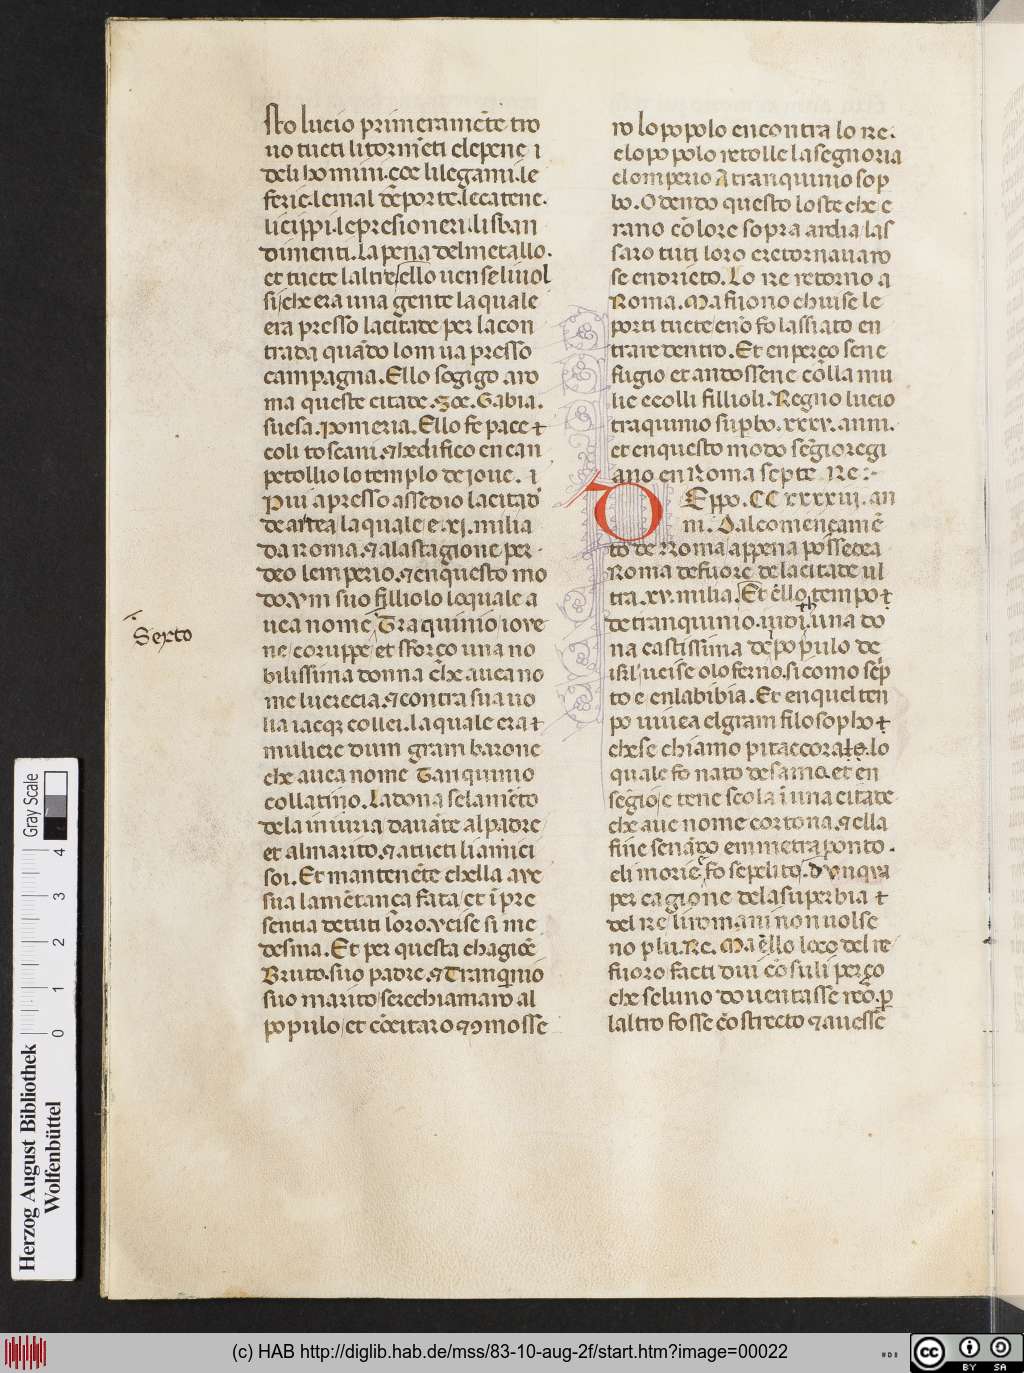 sto lucio primeramēte tro
uo tucti li tormēti cle pene i
deli homini. çoe li legami. le
feric. le mal dē porte. le catene.
li cippi. le presioneri. li sban
dimenti. la pena del metallo.
et tucte laltre. ello uense li uol
si. che era una gente la quale
era presso la citade per la con
trada quādo lom ua presso
campagna. Ello sogigo a ro
ma queste citade. Zoe. Gabia.
suesa. pomeria. Ello fe pace ⁊
coli toscani. ⁊ hedifico en can
petollio lo templo de ioue. i
Piui apresso assedio la citad
de artea la quale e. xj. milia
da Roma. ⁊ a la stagione per
deo lemperio. ⁊ en questo mo
do. vm suo filliolo lo quale a
uea nome Traquinio iove
Sexto
ne coruppe et sforço una no
bilissima donna che auea no
me lucrecia. ⁊ contra sua uo
lia iacq; collei. la quale era ⁊
muliere dum gram barone
che auea nome Tanquinio
collatino. La dona se lamēto
de la iniuria dauāte al padre
et al marito. ⁊ a tucti li amici
soi. Et mantenēte chella ave
sua lamētança fata et ī pre
sentia de tuti loro. ucise si me
desma. Et per questa chagiōe
Bruto. suo padre. ⁊ Tranqinio
suo marito se rechiamaro al
populo et cōcitaro ⁊ ɔmosse
ro lo popolo encontra lo re.
elo popolo retolle la segnoria
el omperio A tranquinio sop
bo. Odendo questo loste che e
rano cō lore sopra ardia las
saro tuti loro e retornauaro
se endrieto. Lo re retorno a
Roma. Ma fuono chiuse le
porti tucte e nō fo lassiato en
trare dentro. Et en perço sen e
fugio et andossene cōlla mu
lie e colli fillioli. Regno lucio
traquinio supbo. xxxv. anni.
et en questo modo segiō regi
ano en Roma septe Re :-
Eppo. CC xxxxiii. an
ni. Dal comencamē
to de Roma appena possedea
Roma de fuore de la citade ul
tra. xv. milia. Et ello tempo ⁊
de tranquinio. iudith una do
na castissima de popˉulo de
isrˉl ucise oloferno. si como sēp
to e en la bibia. Et en quel ten
po uiuea el gram filosopho ⁊
che se chiamo pitaccorate. lo
quale fo nato de sama. et en
segiō e tene scola ī una citade
che aue nome cortona. ⁊ ella
fine sen ādo em metraponto.
eli moriē fo sepelito. dunqua
per cagione de la superbia ⁊
del re li romani non uolse
no plu. Re. Ma ello loco del re
fuoro facti dui cōsuli perço
che se luno douentasse reō. p
laltro fosse cōstrecto ⁊ auesse
Herzog August Bibliothek
Wolfenbüttel
0 1 2 3 4
Gray Scale
(c) HAB http://diglib.hab.de/mss/83-10-aug-2f/start.htm?image=00022
cc BY SA